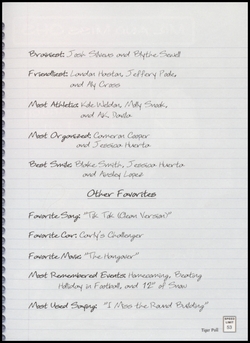 Brainiest: Josh Stivers and Blythe Sewell
Friendliest: Landan Haston, Jeffery Pate,
and Aly Cross
Most Athletic: Kale Weldon, Molly Snook,
and Avi Davila
Most Organized: Cameron Cooper
and Jessica Huerta
Best Smile: Blake Smith, Jessica Huerta
and Ansley Lopez
Other Favorites
Favorite Song: "Tik Tok (Clean Version)"
Favorite Car: Carly's Challenger
Favorite Movie: "The Hangover"
Most Remembered Events: Homecoming, Beating
Holliday in Football, and 12" of Snow
Most Used Saying: "I Miss the Round Building"
Tiger Poll
SPEED
LIMIT
55